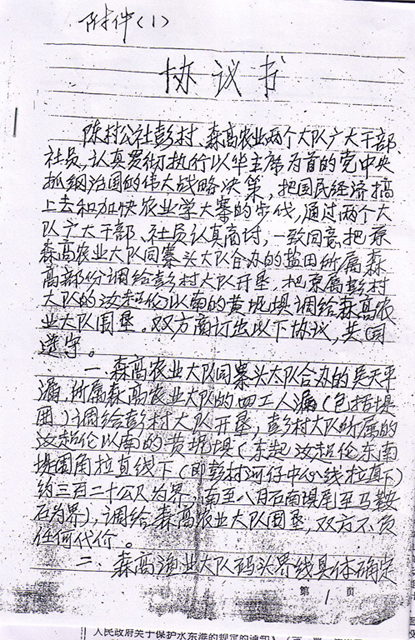 附件(1)
协议书
陈村公社彭村、森高农业两个大队广大干部、
社员,认真贯彻执行以华主席为首的党中央
抓纲治国的伟大战略决策,把国民经济搞
上去和加快农业学大寨的步伐,通过两个大
队广大干部、社员认真商讨,一致同意,把原
森高农业大队同寨头大队合办的盐田所属森
高部份调给彭村大队开垦,把原属彭村
大队的 以南的黄坭埧调给森高农
业大队围垦。双方商订出以下协议,共同
遵守。
一、森高农业大队同寨头大队合办的吴天平
漏,所属森高农业大队的四工人漏(包括堤
围)调给彭村大队开垦,彭村大队所属的
以南的黄坭埧(东起 东南
堤围角拉直线下(即彭村河仔中心线拉直下)
约三百二十公尺为界,南至八月石南埧尾至马鞍
石为界),调给森高农业大队围垦,双方不负
任何代价。
二、森高渔业大队码头界线具体确定
第1页
人民政府关于保护水东港的规定的通知》